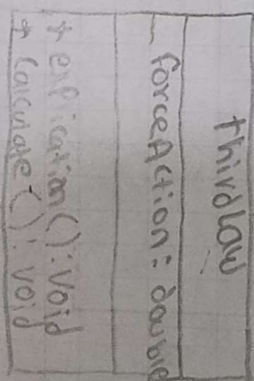 thirdLaw
- forceAction: double
+ explication(): void
+ Calculate(): void